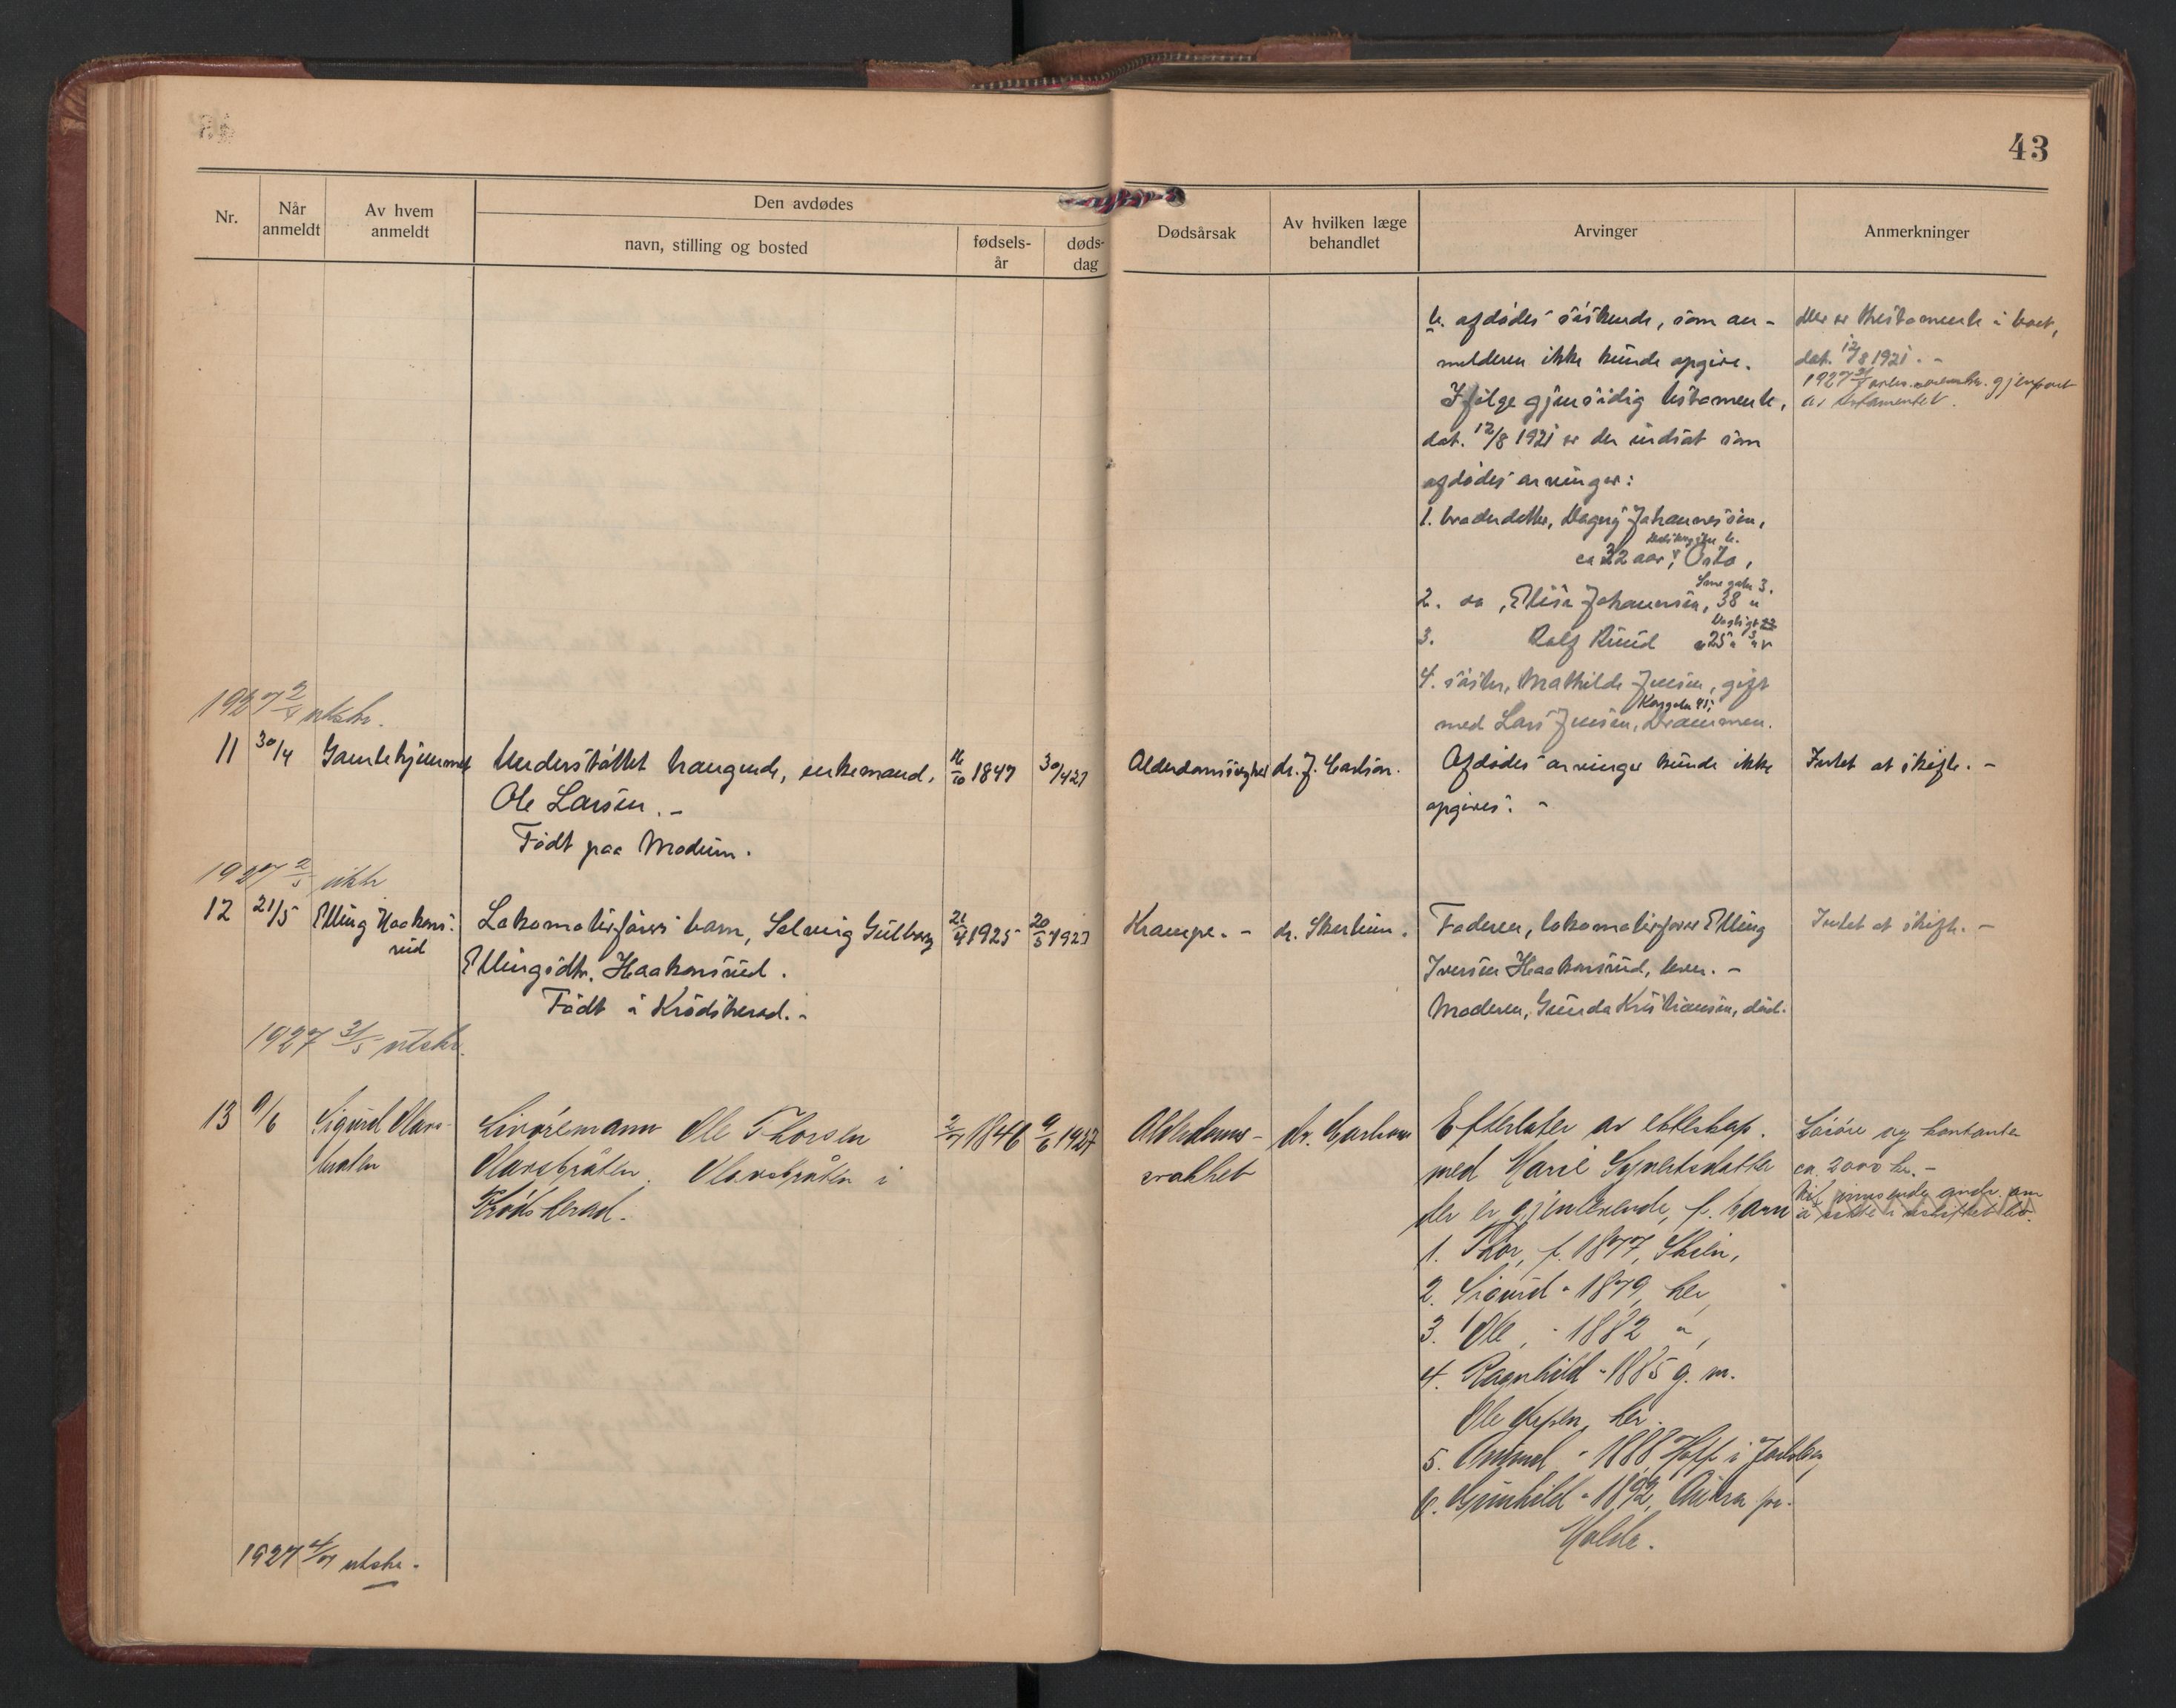 43
Nr.
Når anmeldt
Av hvem anmeldt
Den avdødes
navn, stilling og bosted
fødsels-år
døds-dag
Dødsårsak
Av hvilken læge behandlet
Arvinger
Anmerkninger
b. afdødes søskende, som an-
melderen ikke kunde opgive.
Ifølge gjensidig testamente,
dat. 12/8 1921 er der indsat som
afdødes arvinger:
1. broderdatter, Dagny Johannessen,
ca 32 aar, Oslo,
2. do, Elisa Johannesen, 38 "
Smegaten 3.
3. Rolf Ruud 25 "
4. søster, Mathilde Jensen, gift
med Lars Jensen, Drammen.
Der er testamente i boet,
dat. 12/8 1921. -
gjenpart
av testamentet.
1927 2/5 utskr.
11 30/4 Gamlehjemmet
Understøttet trængende, enkemand,
Ole Larsen. -
Født paa Modum.
16/10 1847
30/4 27
Alderdomssvaghet
dr. J. Carlson.
Afdødes arvinger kunde ikke
opgives. -
Intet at skifte. -
1927 2/5 utskr
12 21/5 Elling Haakons-
rud
Lokomotivførers barn, Solveig Gulborg
Ellingsdtr. Haakonsrud.
Født i Krødsherad. -
21/4 1925
20/5 1927
Krampe. -
dr. Skorheim.
Faderen, lokomotivfører Elling
Iversen Haakonsrud, lever. -
Moderen, Gunda Kristiansen, død.
Intet at skifte. -
1927 31/5 utskr.
13 9/6 Sigurd Olavs-
braaten
Livøremann Ole Thorsen
Olavsbråten. Olavsbråten i
Krødsherad.
2/7 1846
9/6 1927
Alderdoms-
svakhet
dr. Carlson
Efterlater av ekteskap
med Marie Syvertsdatter
der er gjenlevende, f. barn
1. Thor, f. 1877, Skien,
2. Sigurd " 1879, her,
3. Ole, " 1882 ",
4. Ragnhild " 1885 g. m.
Ole her.
5. Amund " 1888 Hoff i Jarlsberg
6. Gunhild " 1892, Aukra pr.
Molde.
Løsøre og kontanter
ca. 2000 kr. -
1927 4/7 utskr.